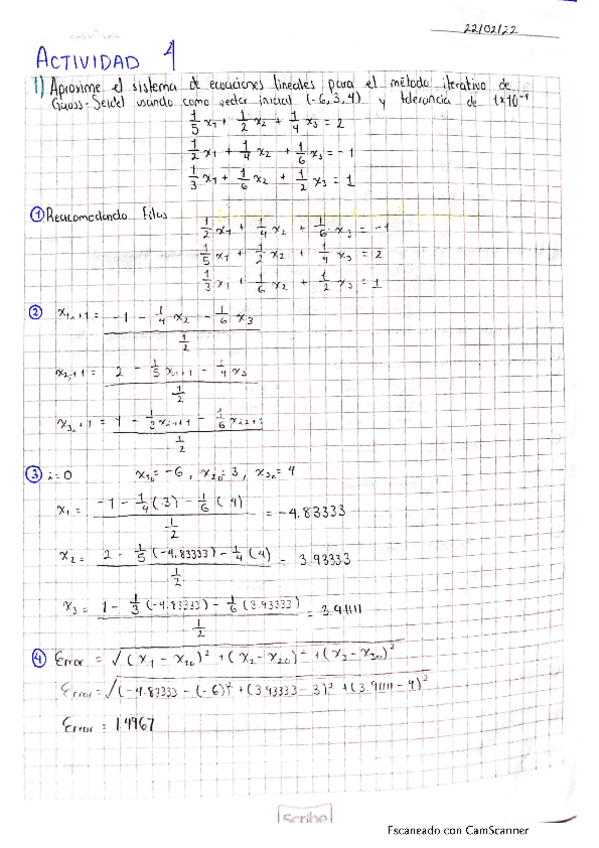 22/02/22
ACTIVIDAD 1
1) Aproxime el sistema de ecuaciones lineales para el método iterativo de
Gauss-Seidel usando como vector inicial (-6,3,4) y tolerancia de
1/5 x1 + 1/2 x2 + 1/4 x3 = 2
1/2 x1 + 1/4 x2 + 1/6 x3 = -1
1/3 x1 + 1/6 x2 + 1/2 x3 = 1
① Reacomodando filas
1/2 x1 + 1/4 x2 + 1/6 x3 = -1
1/5 x1 + 1/2 x2 + 1/4 x3 = 2
1/3 x1 + 1/6 x2 + 1/2 x3 = 1
② x1i+1 = (-1 - 1/4 x2 - 1/6 x3) / (1/2)
x2i+1 = (2 - 1/5 x1i+1 - 1/4 x3) / (1/2)
x3i+1 = (1 - 1/3 x1i+1 - 1/6 x2i+1) / (1/2)
③ i=0 x10 = -6, x20 = 3, x30 = 4
x1 = (-1 - 1/4 (3) - 1/6 (4)) / (1/2) = -4.83333
x2 = (2 - 1/5 (-4.83333) - 1/4 (4)) / (1/2) = 3.93333
x3 = (1 - 1/3 (-4.83333) - 1/6 (3.93333)) / (1/2) = 3.91111
④ Error = √((x1 - x10)² + (x2 - x20)² + (x3 - x30)²)
Error = √((-4.83333 - (-6))² + (3.93333 - 3)² + (3.91111 - 4)²
Error = 1.4967
Scribe
Escaneado con CamScanner